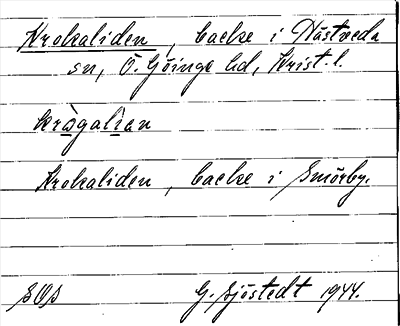 Krokaliden, backe i Hästveda
sn, Ö. Göinge hd, Krist. l.
krògalìan
Krokaliden, backe i Smörby.
SOS G. Sjöstedt 1944.